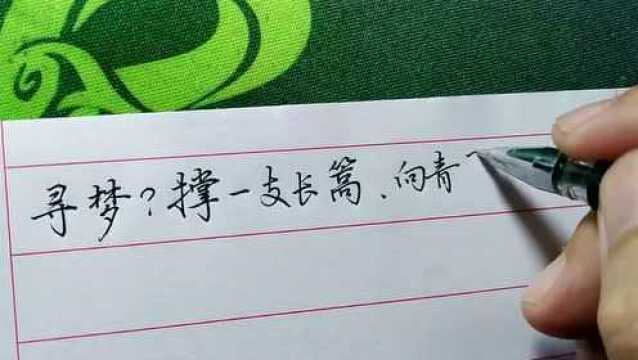 寻梦?撑一支长篙、向青